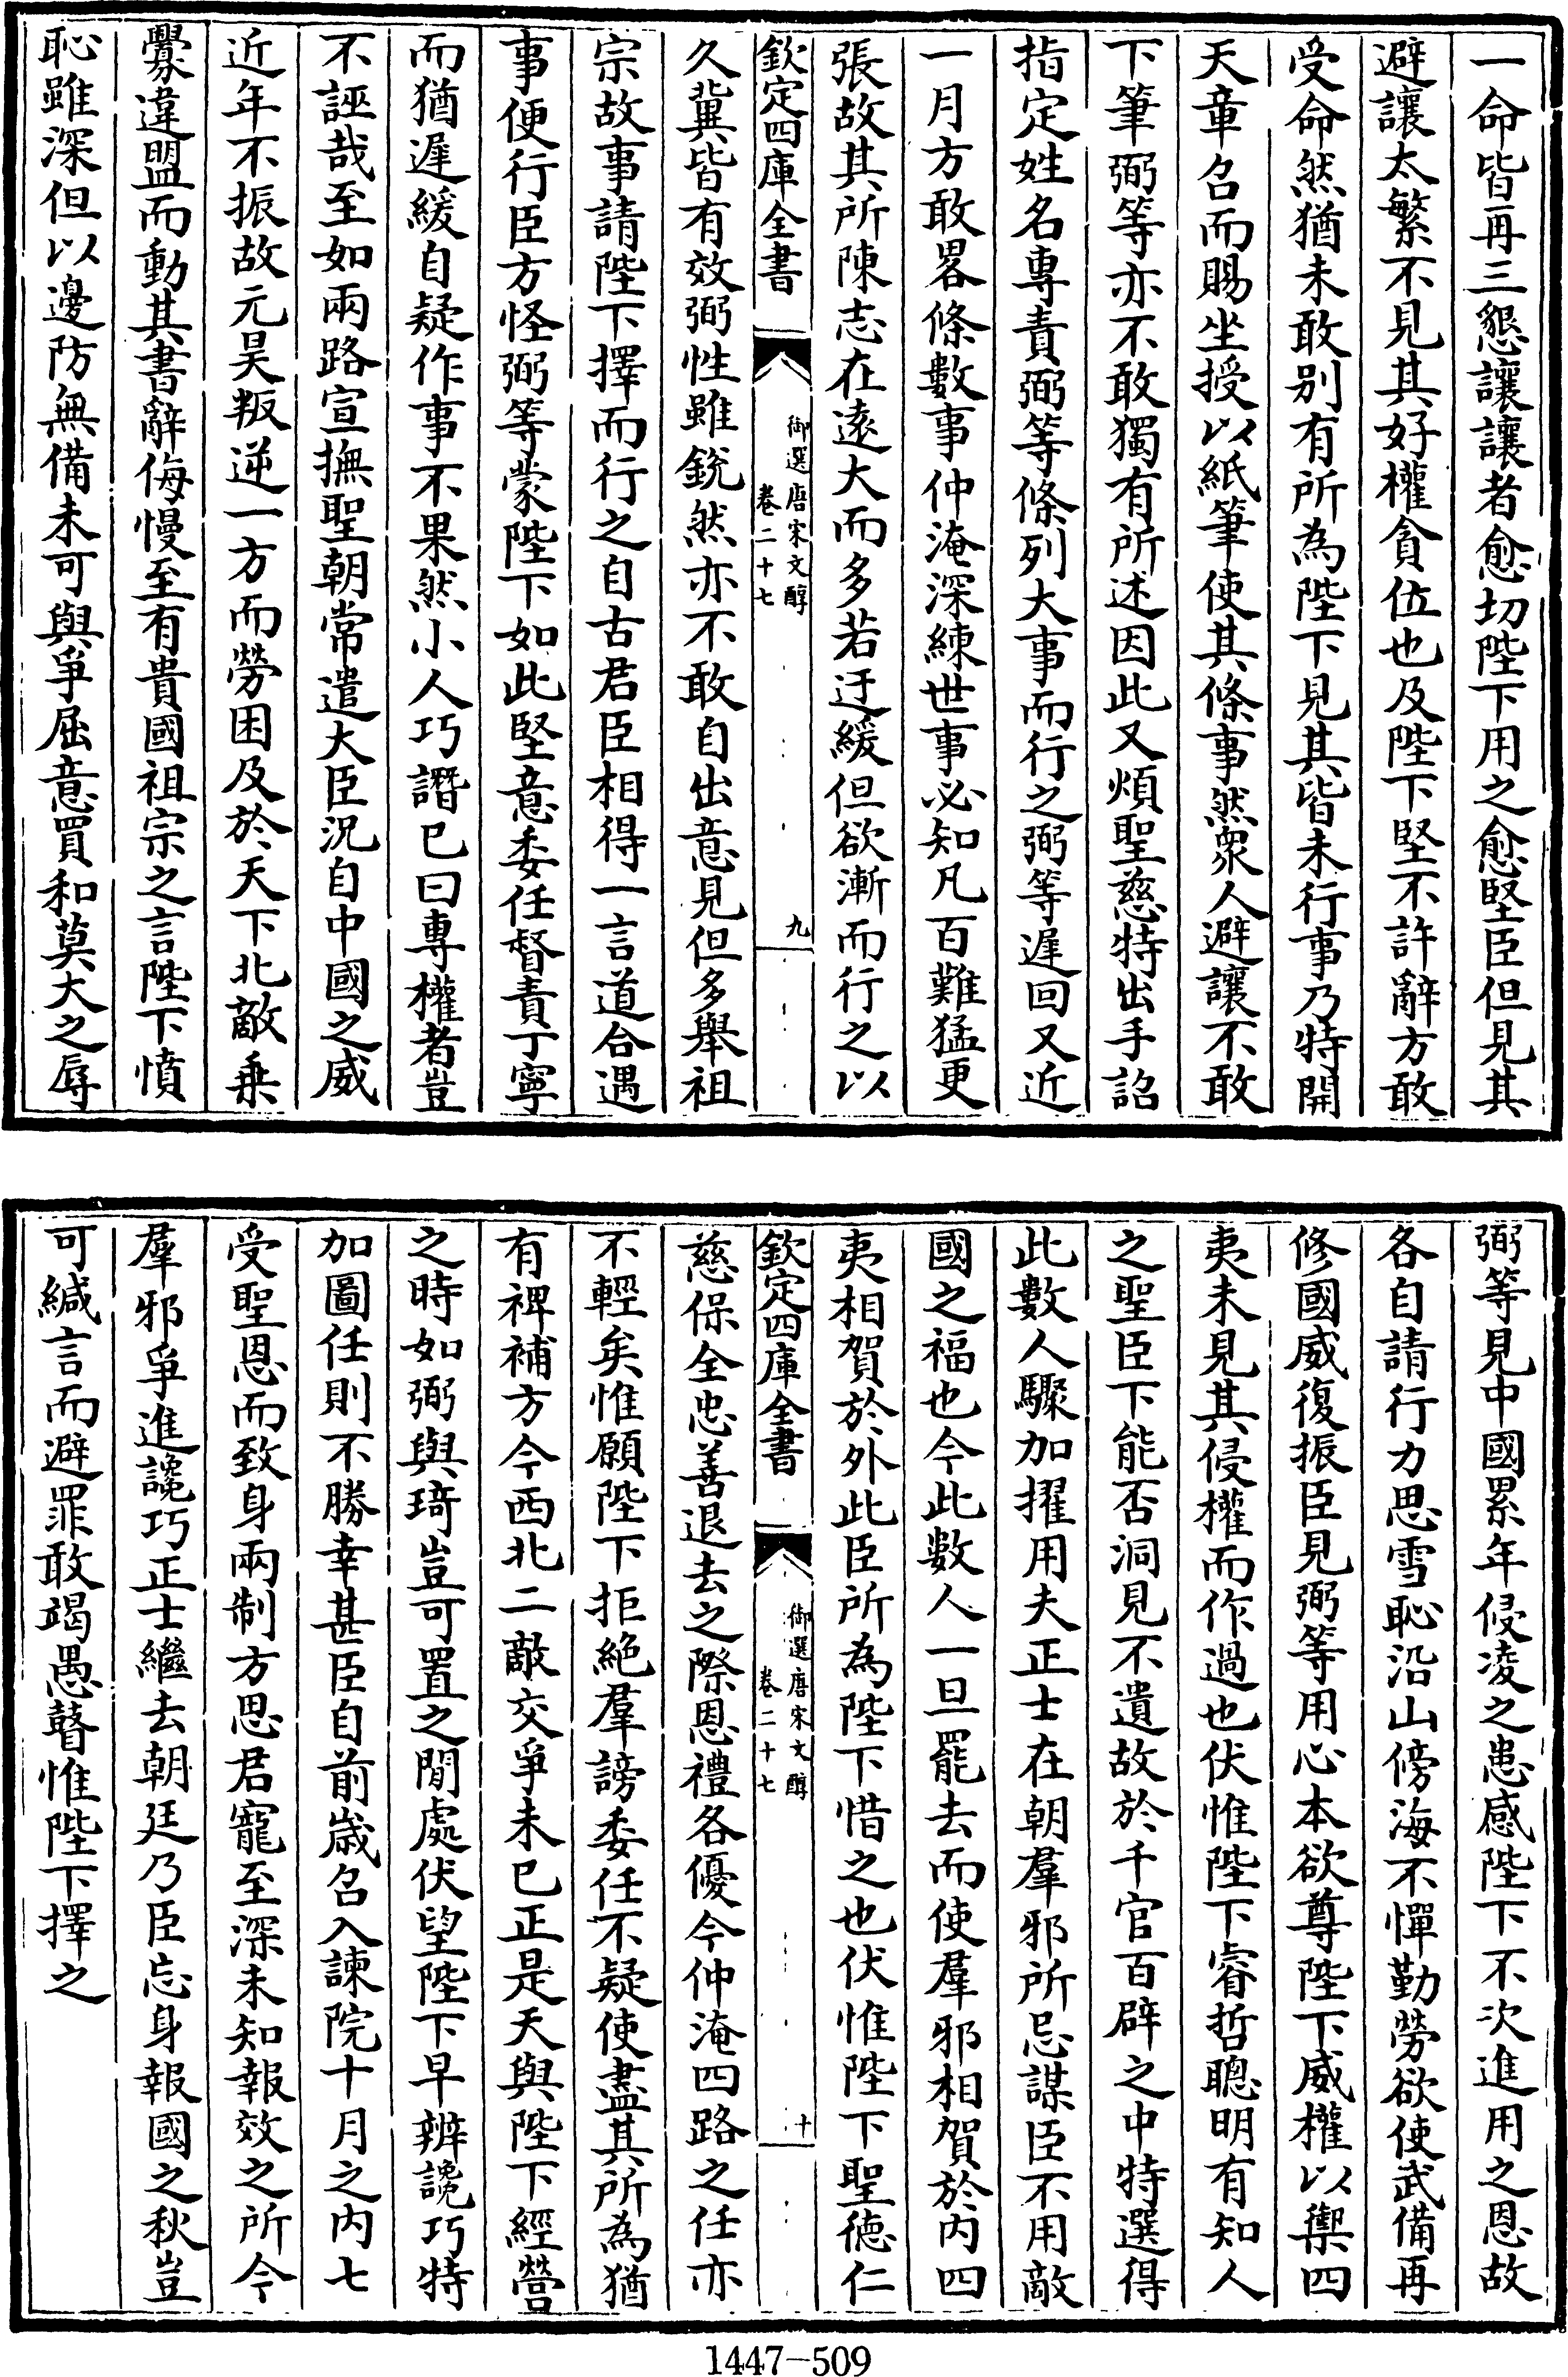 一命皆再三懇讓讓者愈切陛下用之愈堅臣但見其
避讓太繁不見其好權貪位也及陛下堅不許辭方敢
受命然猶未敢别有所為陛下見其皆未行事乃特開
天章召而賜坐授以紙筆使其條事然衆人避讓不敢
下筆弼等亦不敢獨有所述因此又煩聖慈特出手詔
指定姓名專責弼等條列大事而行之弼等遲回又近
一月方敢畧條數事仲淹深練世事必知凡百難猛更
張故其所陳志在遠大而多若迂緩但欲漸而行之以
欽定四庫全書
御選唐宋文醇
卷二十七
九
久冀皆有效弼性雖銳然亦不敢自出意見但多舉祖
宗故事請陛下擇而行之自古君臣相得一言道合遇
事便行臣方怪弼等蒙陛下如此堅意委任督責丁寧
而猶遲緩自疑作事不果然小人巧譖已曰專權者豈
不誣哉至如兩路宣撫聖朝常遣大臣況自中國之威
近年不振故元昊叛逆一方而勞困及於天下北敵乗
釁違盟而動其書辭侮慢至有貴國祖宗之言陛下憤
恥雖深但以邊防無備未可與爭屈意買和莫大之辱
弼等見中國累年侵凌之患感陛下不次進用之恩故
各自請行力思雪恥沿山傍海不憚勤勞欲使武備再
修國威復振臣見弼等用心本欲尊陛下威權以禦四
夷未見其侵權而作過也伏惟陛下睿哲聰明有知人
之聖臣下能否洞見不遺故於千官百辟之中特選得
此數人驟加擢用夫正士在朝羣邪所忌謀臣不用敵
國之福也今此數人一旦罷去而使羣邪相賀於内四
夷相賀於外此臣所為陛下惜之也伏惟陛下聖德仁
欽定四庫全書
御選唐宋文醇
卷二十七
十
慈保全忠善退去之際恩禮各優今仲淹四路之任亦
不輕矣惟願陛下拒絶羣謗委任不疑使盡其所為猶
有裨補方今西北二敵交爭未已正是天與陛下經營
之時如弼與琦豈可置之閒處伏望陛下早辨讒巧特
加圖任則不勝幸甚臣自前歲召入諫院十月之内七
受聖恩而致身兩制方思君寵至深未知報效之所今
羣邪爭進讒巧正士繼去朝廷乃臣忘身報國之秋豈
可緘言而避罪敢竭愚瞽惟陛下擇之
1447-509